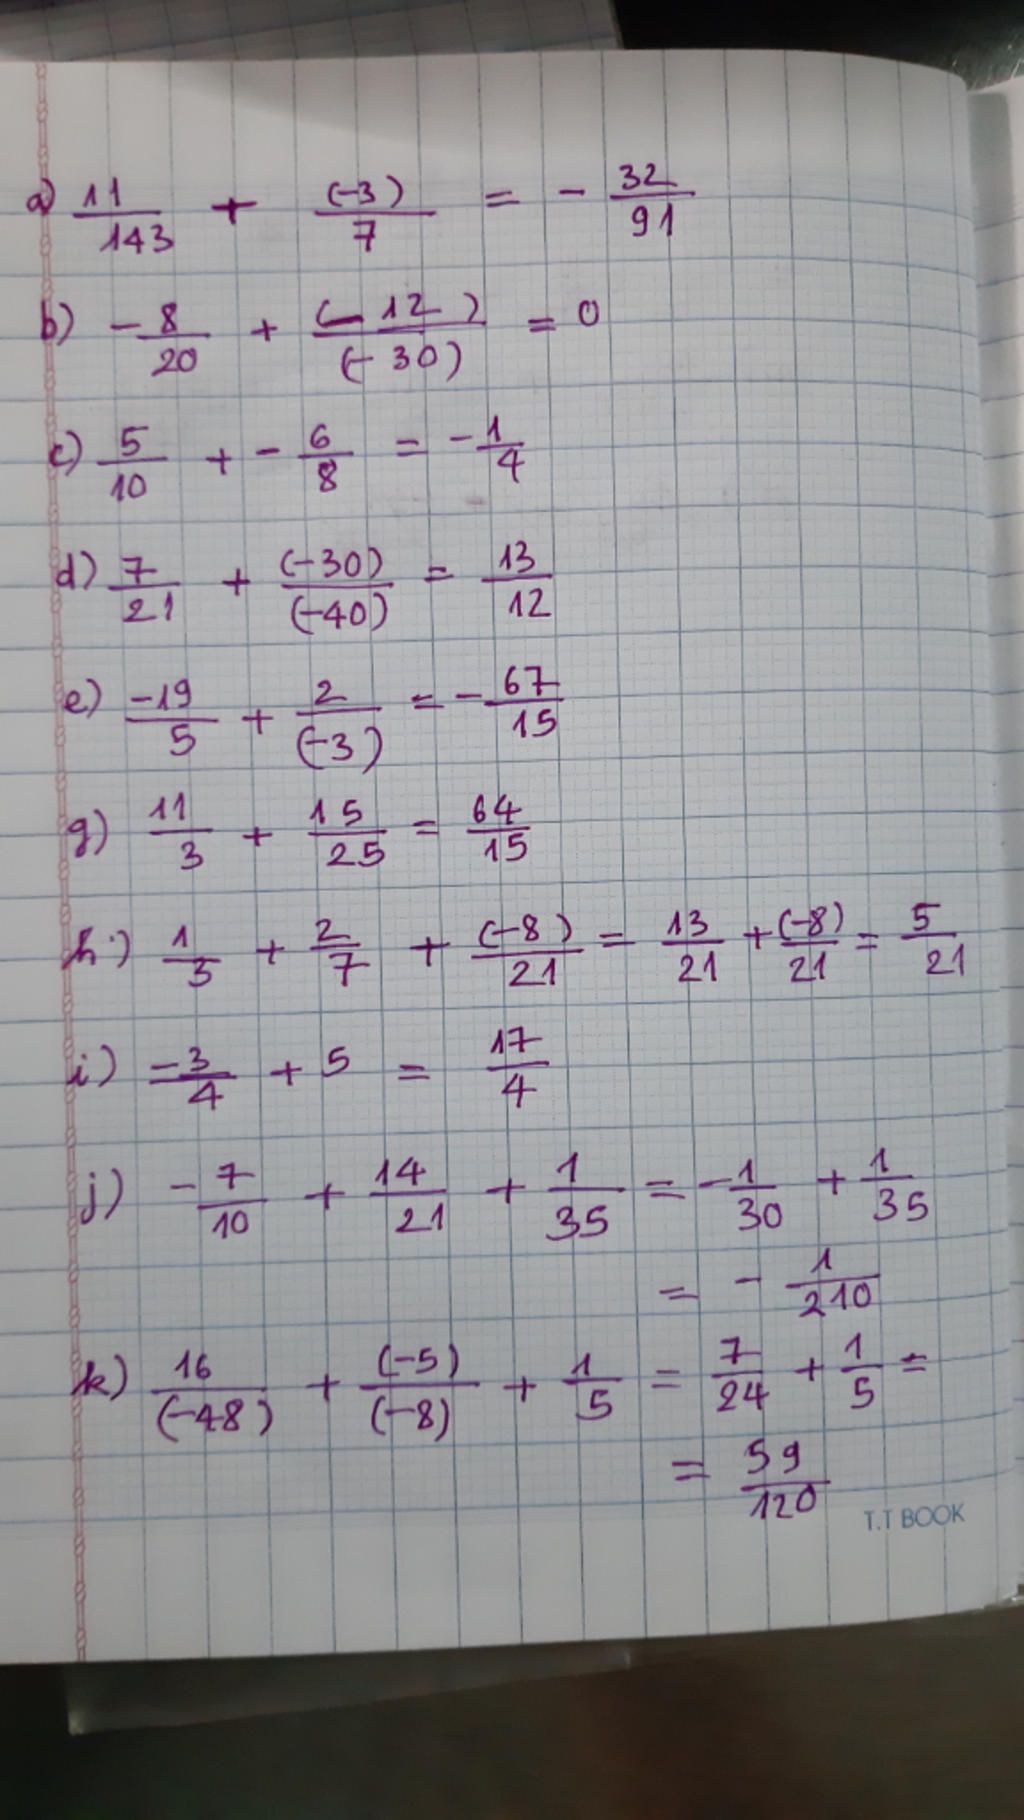 a) 11/143 + (-3)/7 = - 32/91
b) - 8/20 + (-12)/(-30) = 0
c) 5/10 + - 6/8 = - 1/4
d) 7/21 + (-30)/(-40) = 13/12
e) -19/5 + 2/(-3) = - 67/15
g) 11/3 + 15/25 = 64/15
h) 1/3 + 2/7 + (-8)/21 = 13/21 + (-8)/21 = 5/21
i) -3/4 + 5 = 17/4
j) - 7/10 + 14/21 + 1/35 = - 1/30 + 1/35
= - 1/210
k) 16/(-48) + (-5)/(-8) + 1/5 = 7/24 + 1/5 =
= 59/120
T.T BOOK